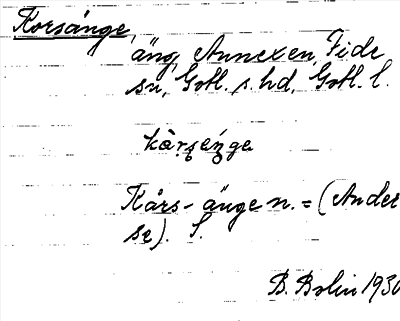 Korsänge,
äng, Annexen, Fide
sn, Gotl. s. hd, Gotl. l.
kàrsęń̨ge
Kårs-änge n. = (Ander
se). S.
B. Bolin 1930